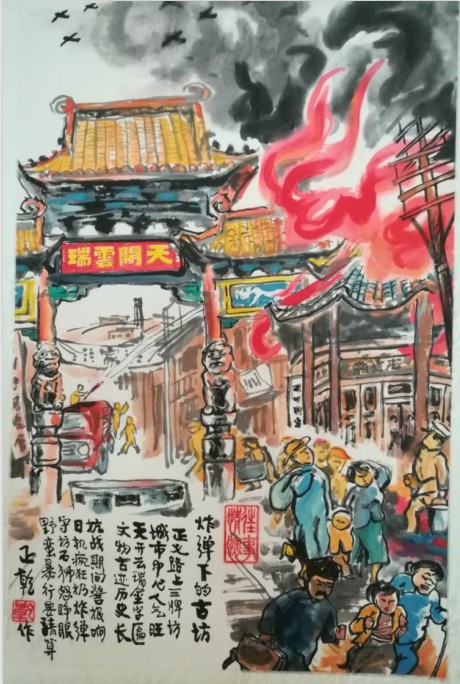 天開雲瑞
炸弹下的古坊
正义路上三牌坊
城市中心人气旺
天开云瑞金字匾
文物古迹历史长
抗战期间警报响
日机疯狂扔炸弹
守坊石狮怒睁眼
野蛮暴行要清算
正乾
作